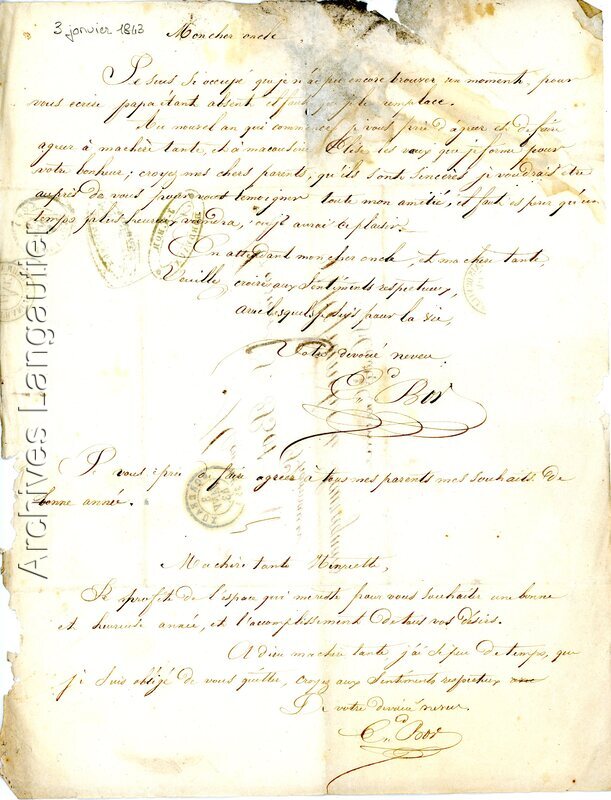 3 janvier 1843
Mon cher oncle,
Je suis si occupé que je n'ai pu encore trouver un moment, pour
vous ecrire papa étant absent il faut que je le remplace.
Au nouvel an qui commence, je vous prie d'agréer et de faire
agreer à ma chère tante, et à ma cousine les vœux que je forme pour
votre bonheur; croyez mes chers parents, qu'ils sont sincères, je voudrais être
auprès de vous pour vous temoigner toute mon amitié, il faut esperer qu'un
temps plus heureux viendra, où j'aurai ce plaisir.
En attendant mon cher oncle, et ma chère tante,
Veuillez croire aux sentiments respectueux,
avec lesquels je suis pour la vie,
Votre devoué neveu
Ed Bor
Je vous prie de faire agreer à tous mes parents mes souhaits de
bonne année.
Ma chère tante Henriette,
Je profite de l'espace qui me reste pour vous souhaiter une bonne
et heureuse année, et l'accomplissement de tous vos désirs.
Adieu ma chère tante j'ai si peu de temps, que
je suis obligé de vous quitter, croyez aux sentiments respectueux
De votre devoué neveu
Ed Bor
Archives Langautier